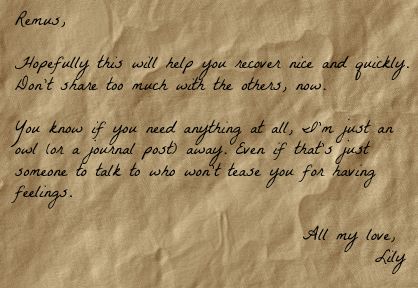 Remus,
Hopefully this will help you recover nice and quickly.
Don't share too much with the others, now.
You know if you need anything at all, I'm just an
owl (or a journal post) away. Even if that's just
someone to talk to who won't tease you for having
feelings.
All my love,
Lily